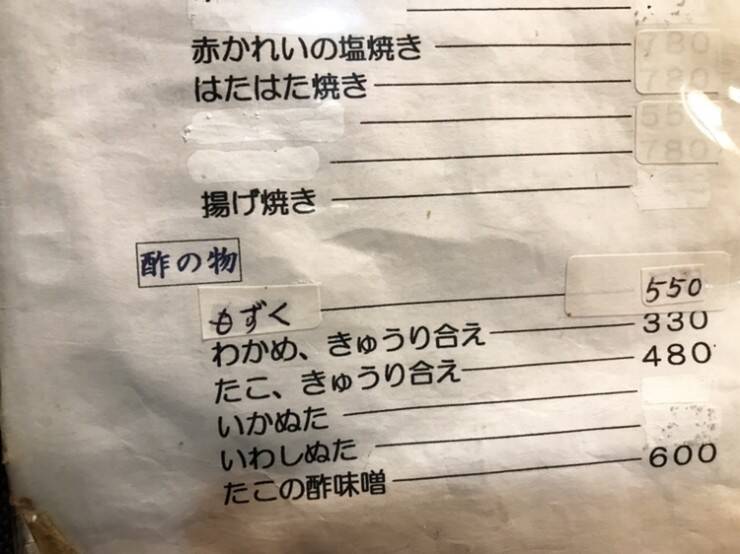 赤かれいの塩焼き 780
はたはた焼き 780
55
780
揚げ焼き
酢の物
もずく 550
わかめ、きゅうり合え 330
たこ、きゅうり合え 480
いかぬた
いわしぬた
たこの酢味噌 600